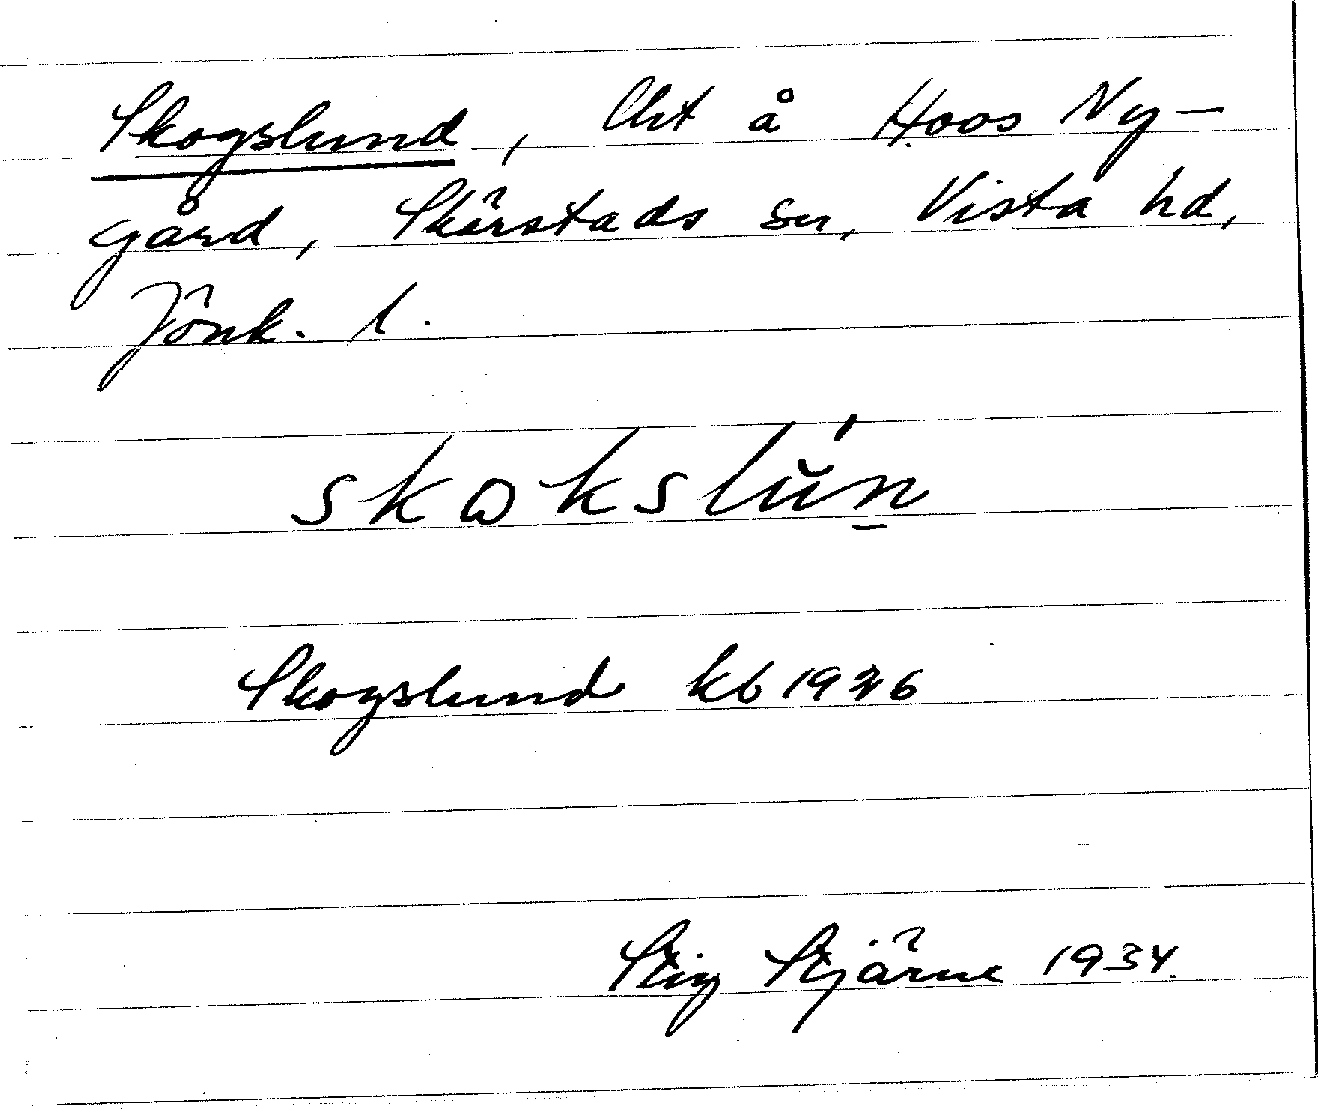 Skogslund, lht å Hoos Ny-
gård, Skärstads sn, Vista hd,
Jönk. l.
skɷkslún̲
Skogslund kb 1926
Stig Stjärne 1934.